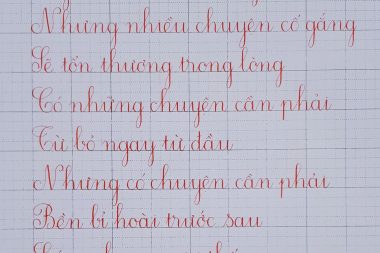 Nhưng nhiều chuyện cố gắng
Sẽ tổn thương trong lòng
Có những chuyện cần phải
Từ bỏ ngay từ đầu
Nhưng có chuyện cần phải
Bền bỉ hoài trước sau